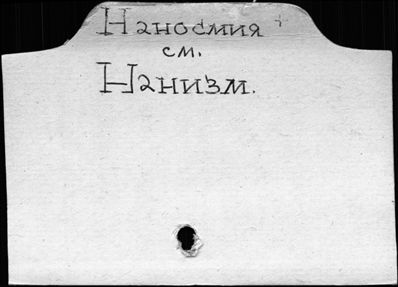 Наносмия
см.
Нанизм.